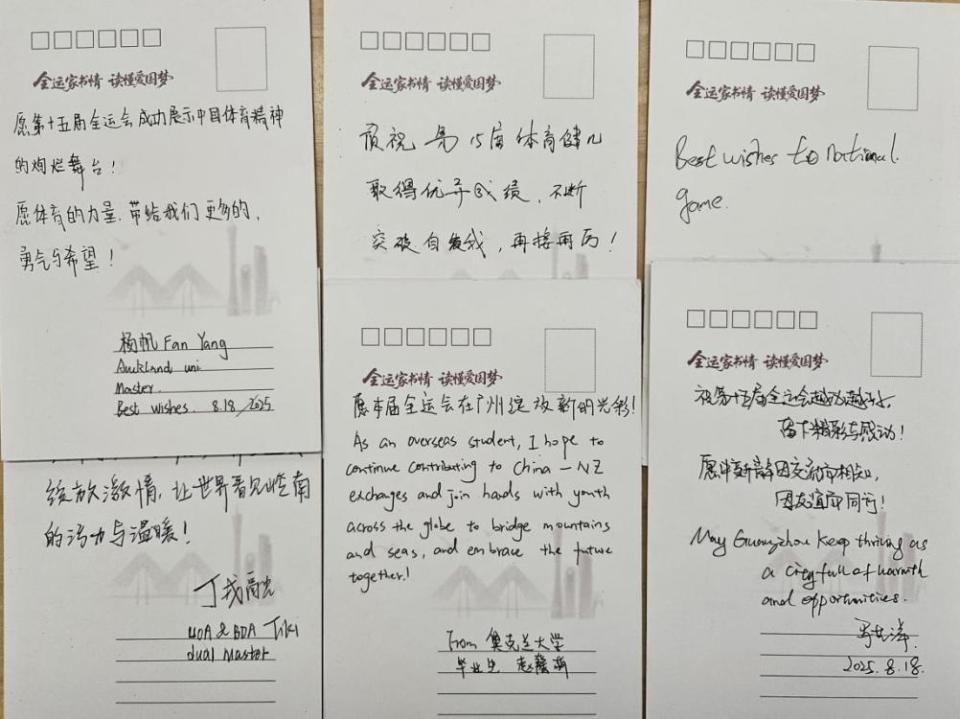 全运家书情 读懂爱国梦
愿第十五届全运会成功展示中国体育精神
的绚烂舞台！
愿体育的力量，带给我们更多的，
勇气与希望！
杨帆 Fan Yang
Auckland uni
Master.
Best wishes. 8.18/2025
绽放激情，让世界看见岭南
的活力与温暖！
UOA & BDA Tiki
dual Master
全运家书情 读懂爱国梦
预祝 15届体育健儿
取得优异成绩，不断
突破自我，再接再厉！
全运家书情 读懂爱国梦
愿本届全运会在广州绽放新的光彩！
As an overseas student, I hope to
continue contributing to China - NZ
exchanges and join hands with youth
across the globe to bridge mountains
and seas, and embrace the future
together!
From 奥克兰大学
毕业生 赵
全运家书情 读懂爱国梦
Best wishes to national
game.
全运家书情 读懂爱国梦
祝第十五届全运会越办越好，
留下精彩与感动！
愿中新青年因交流而相知，
因友谊而同行！
May Guangzhou keep thriving as
a city full of warmth
and opportunities.
2025.8.18.